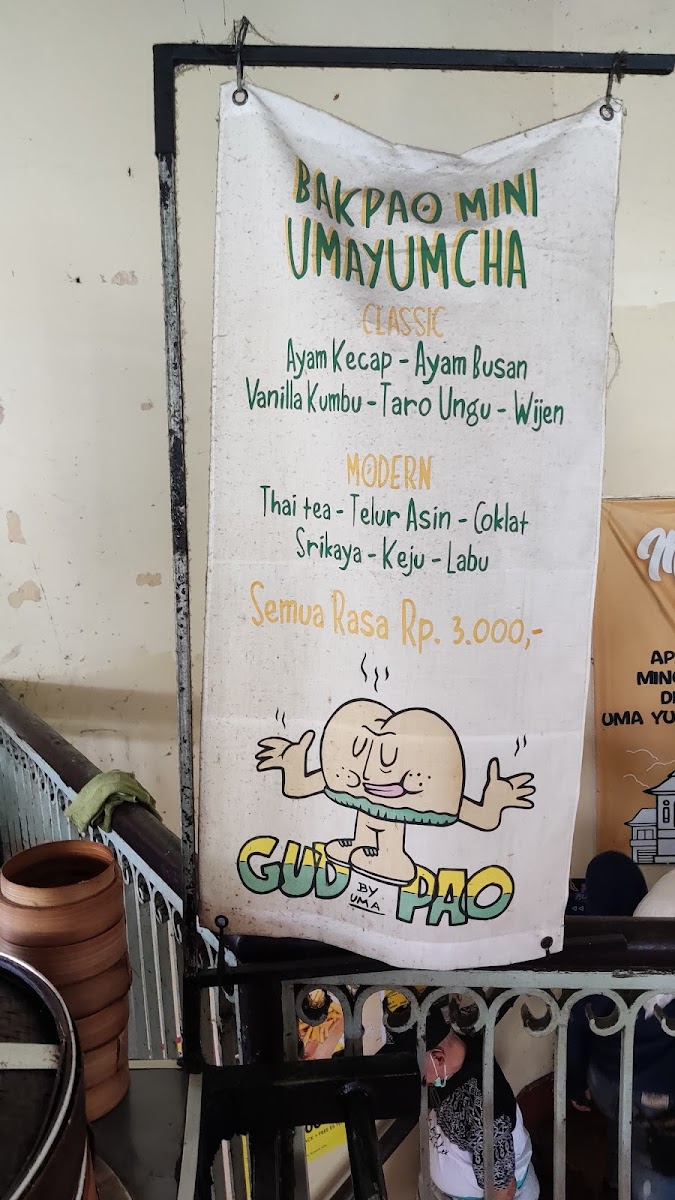 BAKPAO MINI
UMAYUMCHA
CLASSIC
Ayam Kecap - Ayam Busan
Vanilla Kumbu - Taro Ungu - Wijen
MODERN
Thai tea - Telur Asin - Coklat
Srikaya - Keju - Labu
Semua Rasa Rp. 3.000,-
GUD PAO
BY
UMA
AP
MING
DI
UMA YU